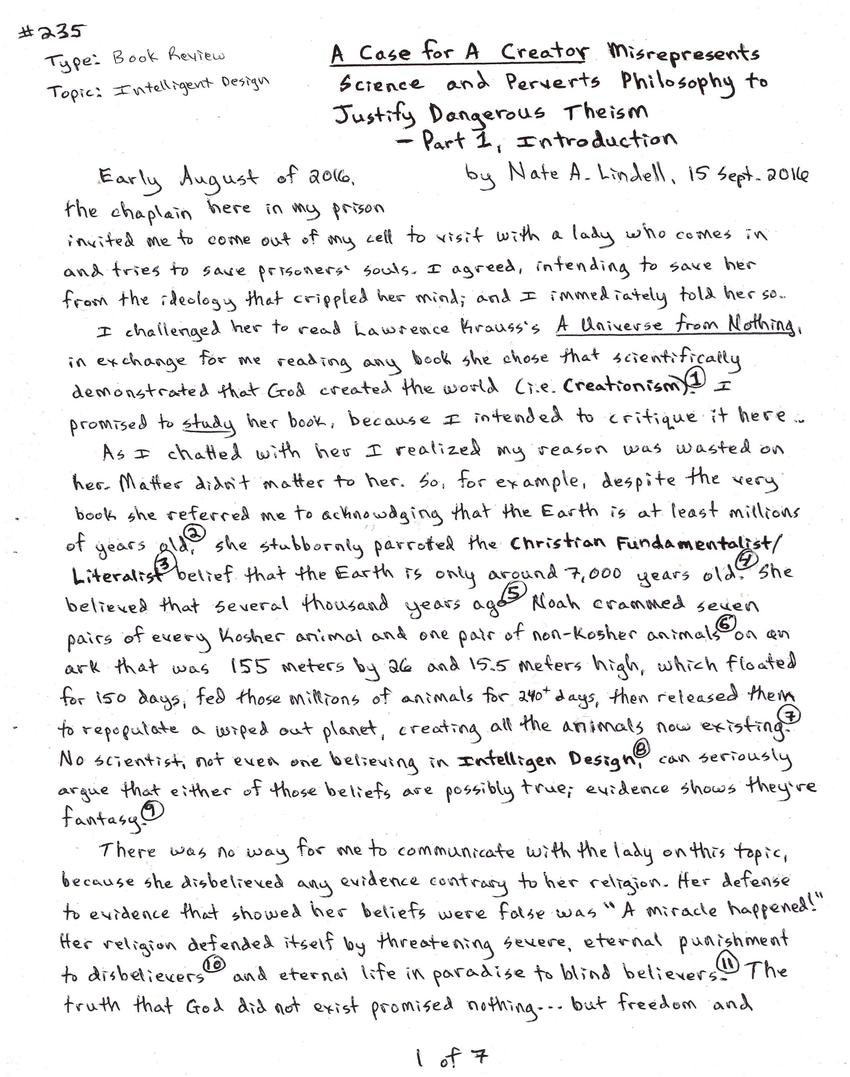 #235
Type: Book Review
Topic: Intelligent Design
A Case for A Creator Misrepresents
Science and Perverts Philosophy to
Justify Dangerous Theism
– Part 1, Introduction
by Nate A. Lindell, 15 Sept. 2016
Early August of 2016,
the chaplain here in my prison
invited me to come out of my cell to visit with a lady who comes in
and tries to save prisoners' souls. I agreed, intending to save her
from the ideology that crippled her mind; and I immediately told her so..
I challenged her to read Lawrence Krauss's A Universe from Nothing,
in exchange for me reading any book she chose that scientifically
demonstrated that God created the world (i.e. Creationism).① I
promised to study her book, because I intended to critique it here...
As I chatted with her I realized my reason was wasted on
her. Matter didn't matter to her. So, for example, despite the very
book she referred me to acknowdging that the Earth is at least millions
of years old,② she stubbornly parroted the Christian Fundamentalist/
Literalist③ belief that the Earth is only around 7,000 years old.④ She
believed that several thousand years ago⑤ Noah crammed seven
pairs of every Kosher animal and one pair of non-Kosher animals⑥ on an
ark that was 155 meters by 26 and 15.5 meters high, which floated
for 150 days, fed those millions of animals for 240+ days, then released them
to repopulate a wiped out planet, creating all the animals now existing.⑦
No scientist, not even one believing in Intelligen Design,⑧ can seriously
argue that either of those beliefs are possibly true; evidence shows they're
fantasy.⑨
There was no way for me to communicate with the lady on this topic,
because she disbelieved any evidence contrary to her religion. Her defense
to evidence that showed her beliefs were false was "A miracle happened!"
Her religion defended itself by threatening severe, eternal punishment
to disbelievers⑩ and eternal life in paradise to blind believers.⑪ The
truth that God did not exist promised nothing... but freedom and
1 of 7